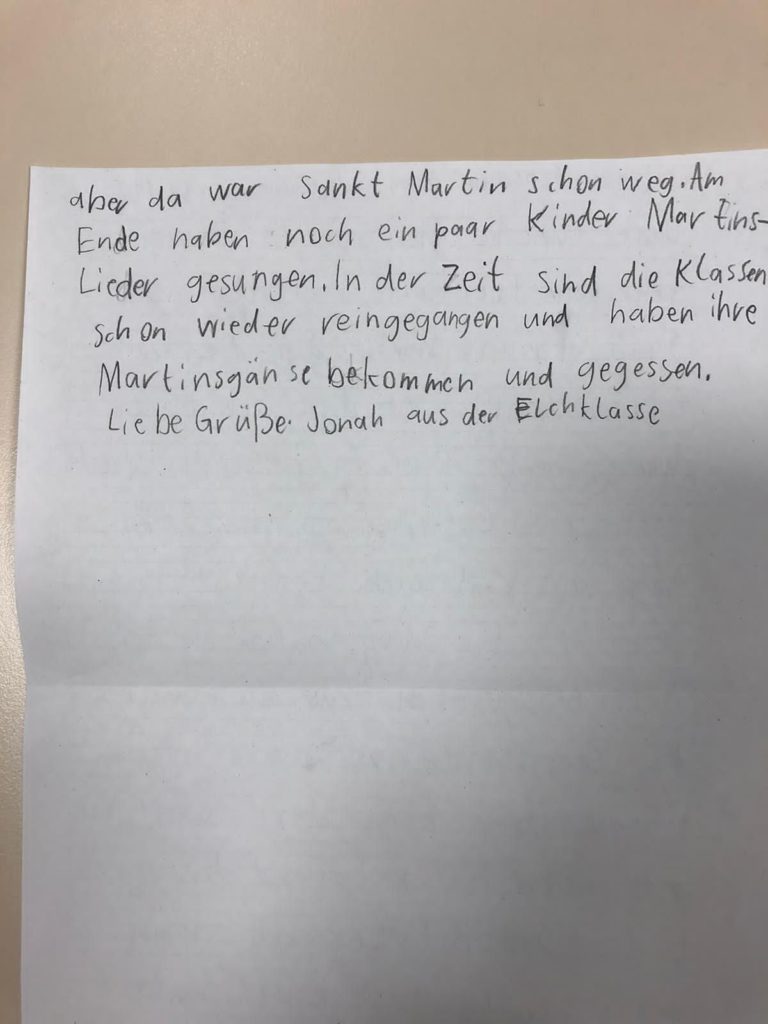 aber da war Sankt Martin schon weg. Am
Ende haben noch ein paar Kinder Martins-
Lieder gesungen. In der Zeit sind die Klassen
schon wieder reingegangen und haben ihre
Martinsgänse bekommen und gegessen.
Liebe Grüße. Jonah aus der Elchklasse